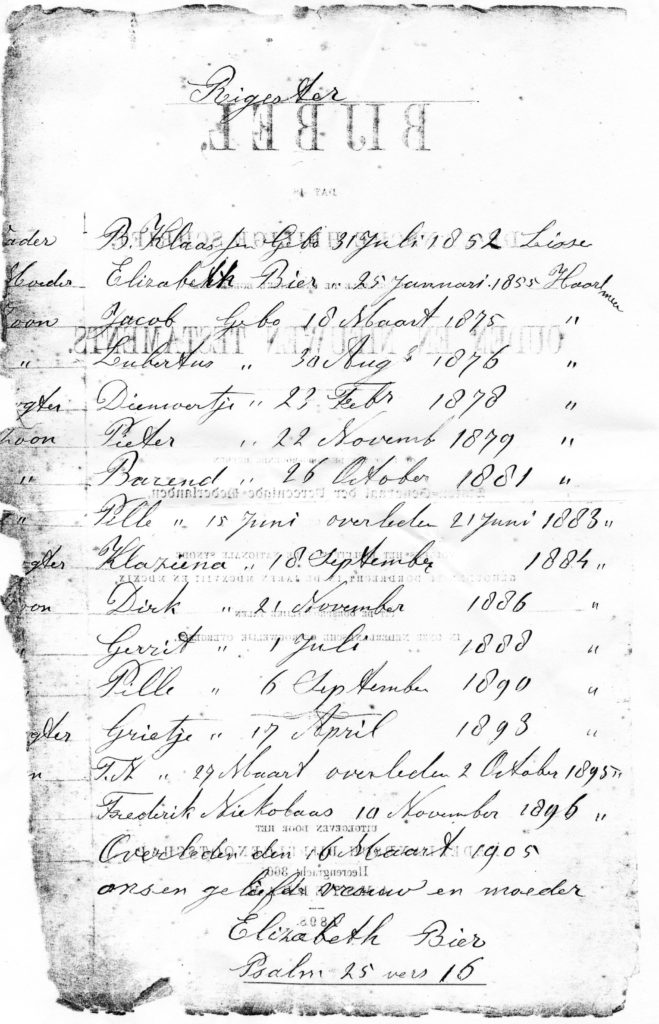 Rigester
BIJBEL,
DAT IS
ader B. Klaasse Gebo 31 Juli 1852 Lisse
Moeder Elizabeth Bier " 25 Januari. 1855 Haarlmeer
Zoon Jacob Gebo 18 Maart 1875 "
" Lubertus " 30 Aug 1876 "
OUDEN EN NIEUWEN TESTAMENTS.
ogter Dienwertje " 23 Febr 1878 "
Zoon Pieter " 22 Novemb 1879 "
" Barend " 26 October 1881 "
Staten-Generaal der Vereenigde Nederlanden,
" Pille " 15 Juni overleden 21 Juni 1883 "
NATIONALE SYNODE
gter Klaziena " 18 September 1884 "
oon Dirk " 21 November 1886 "
" Gerrit " 1 Juli 1888 "
" Pille " 6 September 1890 "
gter Grietje " 17 April 1893 "
n T. N " 29 Maart overleden 2 October 1895 "
Frederik Niekolaas 10 November 1896 "
UITGEGEVEN DOOR HET
Overleden den 16 Maart 1905
Heerengracht 366
onsen geliefde vrouw en moeder
1898.
Elizabeth Bier
Psalm 25 vers 16